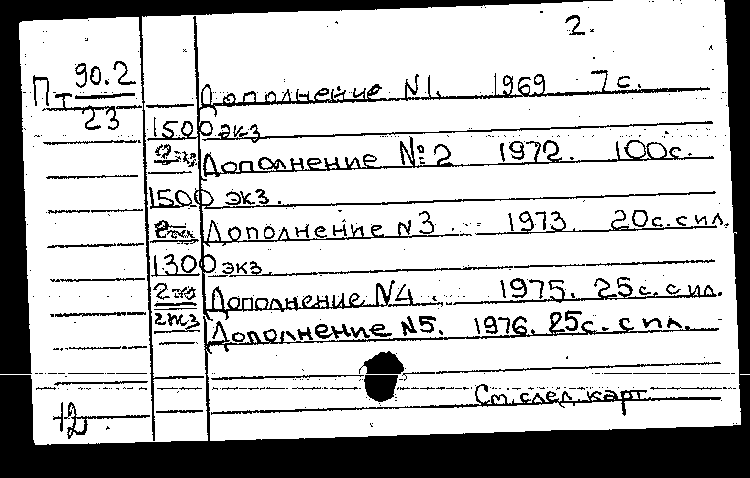 2.
Пт 90.2 Дополнение N1. 1969 7с.
23
1500 экз
2экз Дополнение №2 1972. 100с.
1500 экз.
2экз Дополнение N3 1973. 20с. с ил.
1300 экз.
2экз Дополнение N4. 1975. 25с. с ил.
2экз Дополнение N5. 1976. 25с. с ил.
См. след. карт.
12